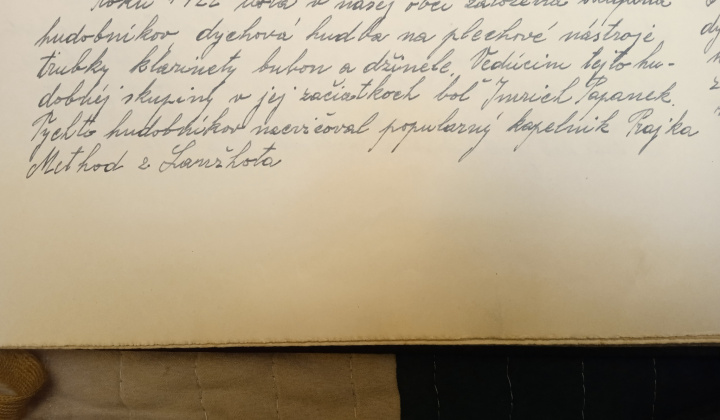 roku 1922 bola v našej obci založená skupina
hudobníkov dychová hudba na plechové nástroje
trubky klarinety bubon a džinele. Vedúcim tejto hu-
dobnej skupiny v jej začiatkoch bol Imrich Papanek.
Týchto hudobníkov nacvičoval popularný kapelnik Prajka
Method z Lanžhota